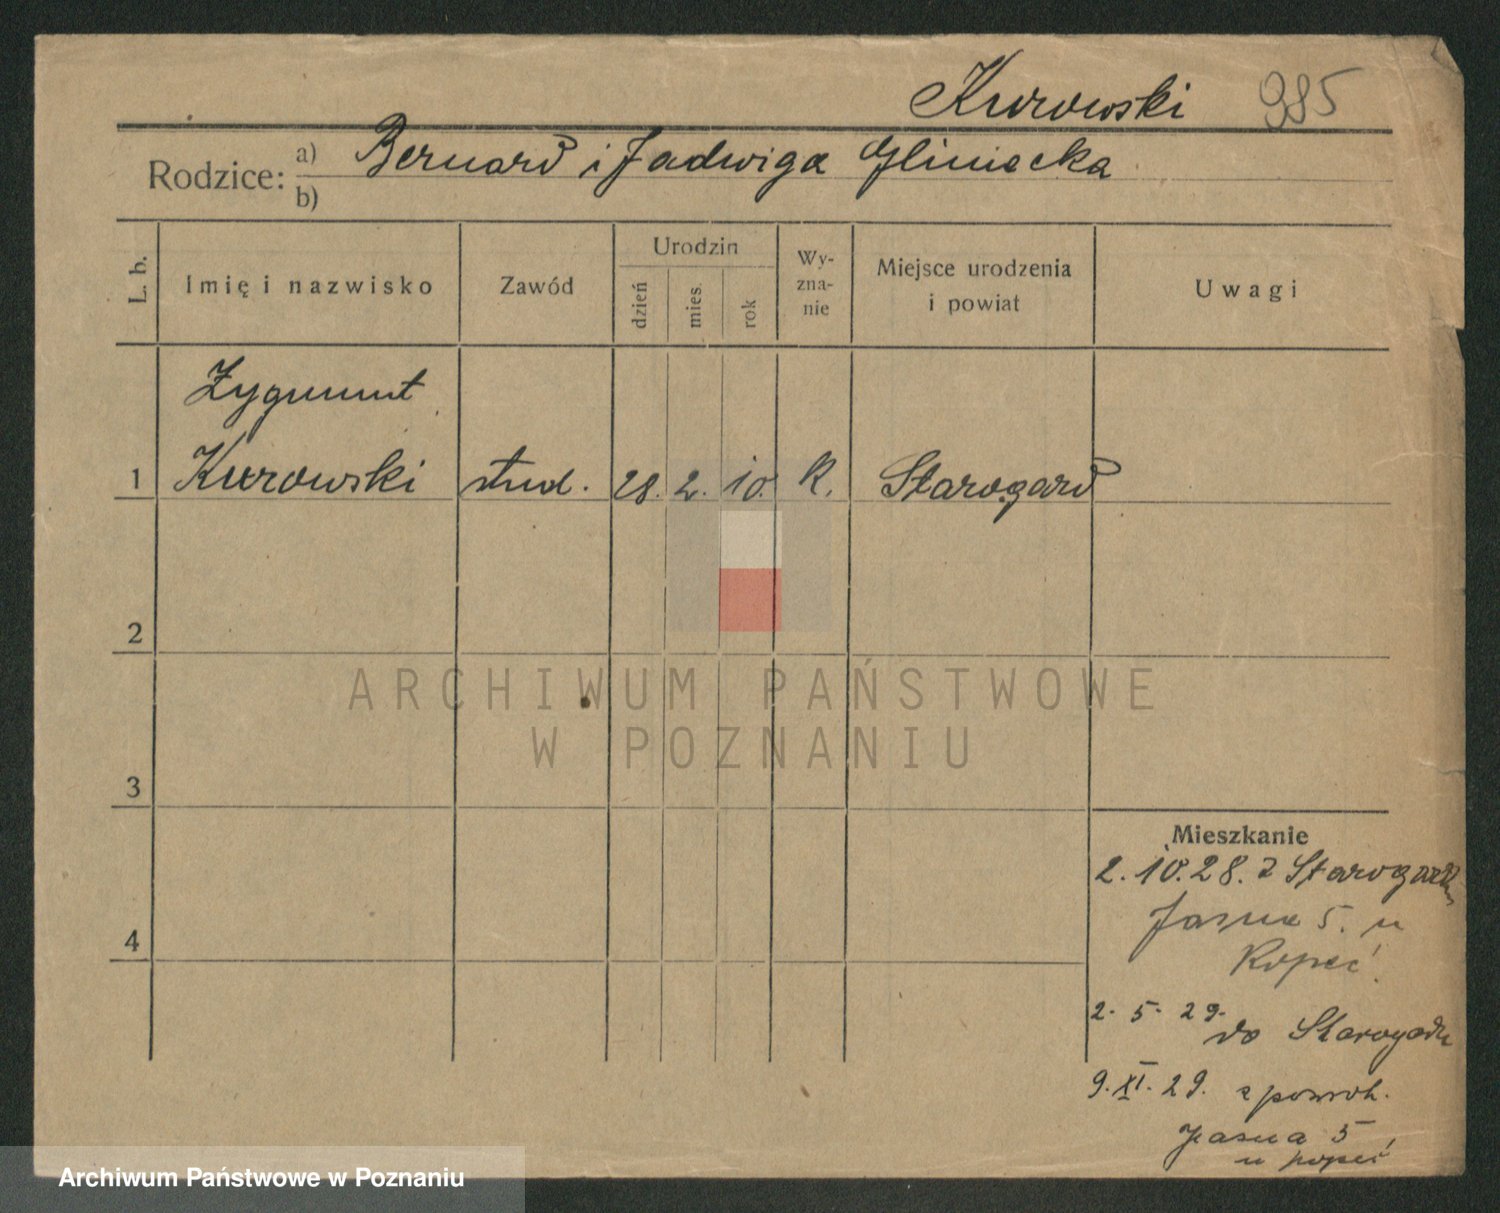 Kurowski 985
Rodzice: a) Bernard i Jadwiga Gliniecka
b)
L. b. Imię i nazwisko Zawód Urodzin dzień mies. rok Wy-zna-nie Miejsce urodzenia i powiat Uwagi
Zygmunt
1 Kurowski stud. 28. 2. 10. K. Starogard
2
ARCHIWUM PAŃSTWOWE
W POZNANIU
3
Mieszkanie
2. 10. 28. z Starogardu
Jasna 5. u
Kopeć
4
2. 5. 29.
do Starogardu
9. XI. 29. z powrok.
Jasna 5
u Kopeć
Archiwum Państwowe w Poznaniu